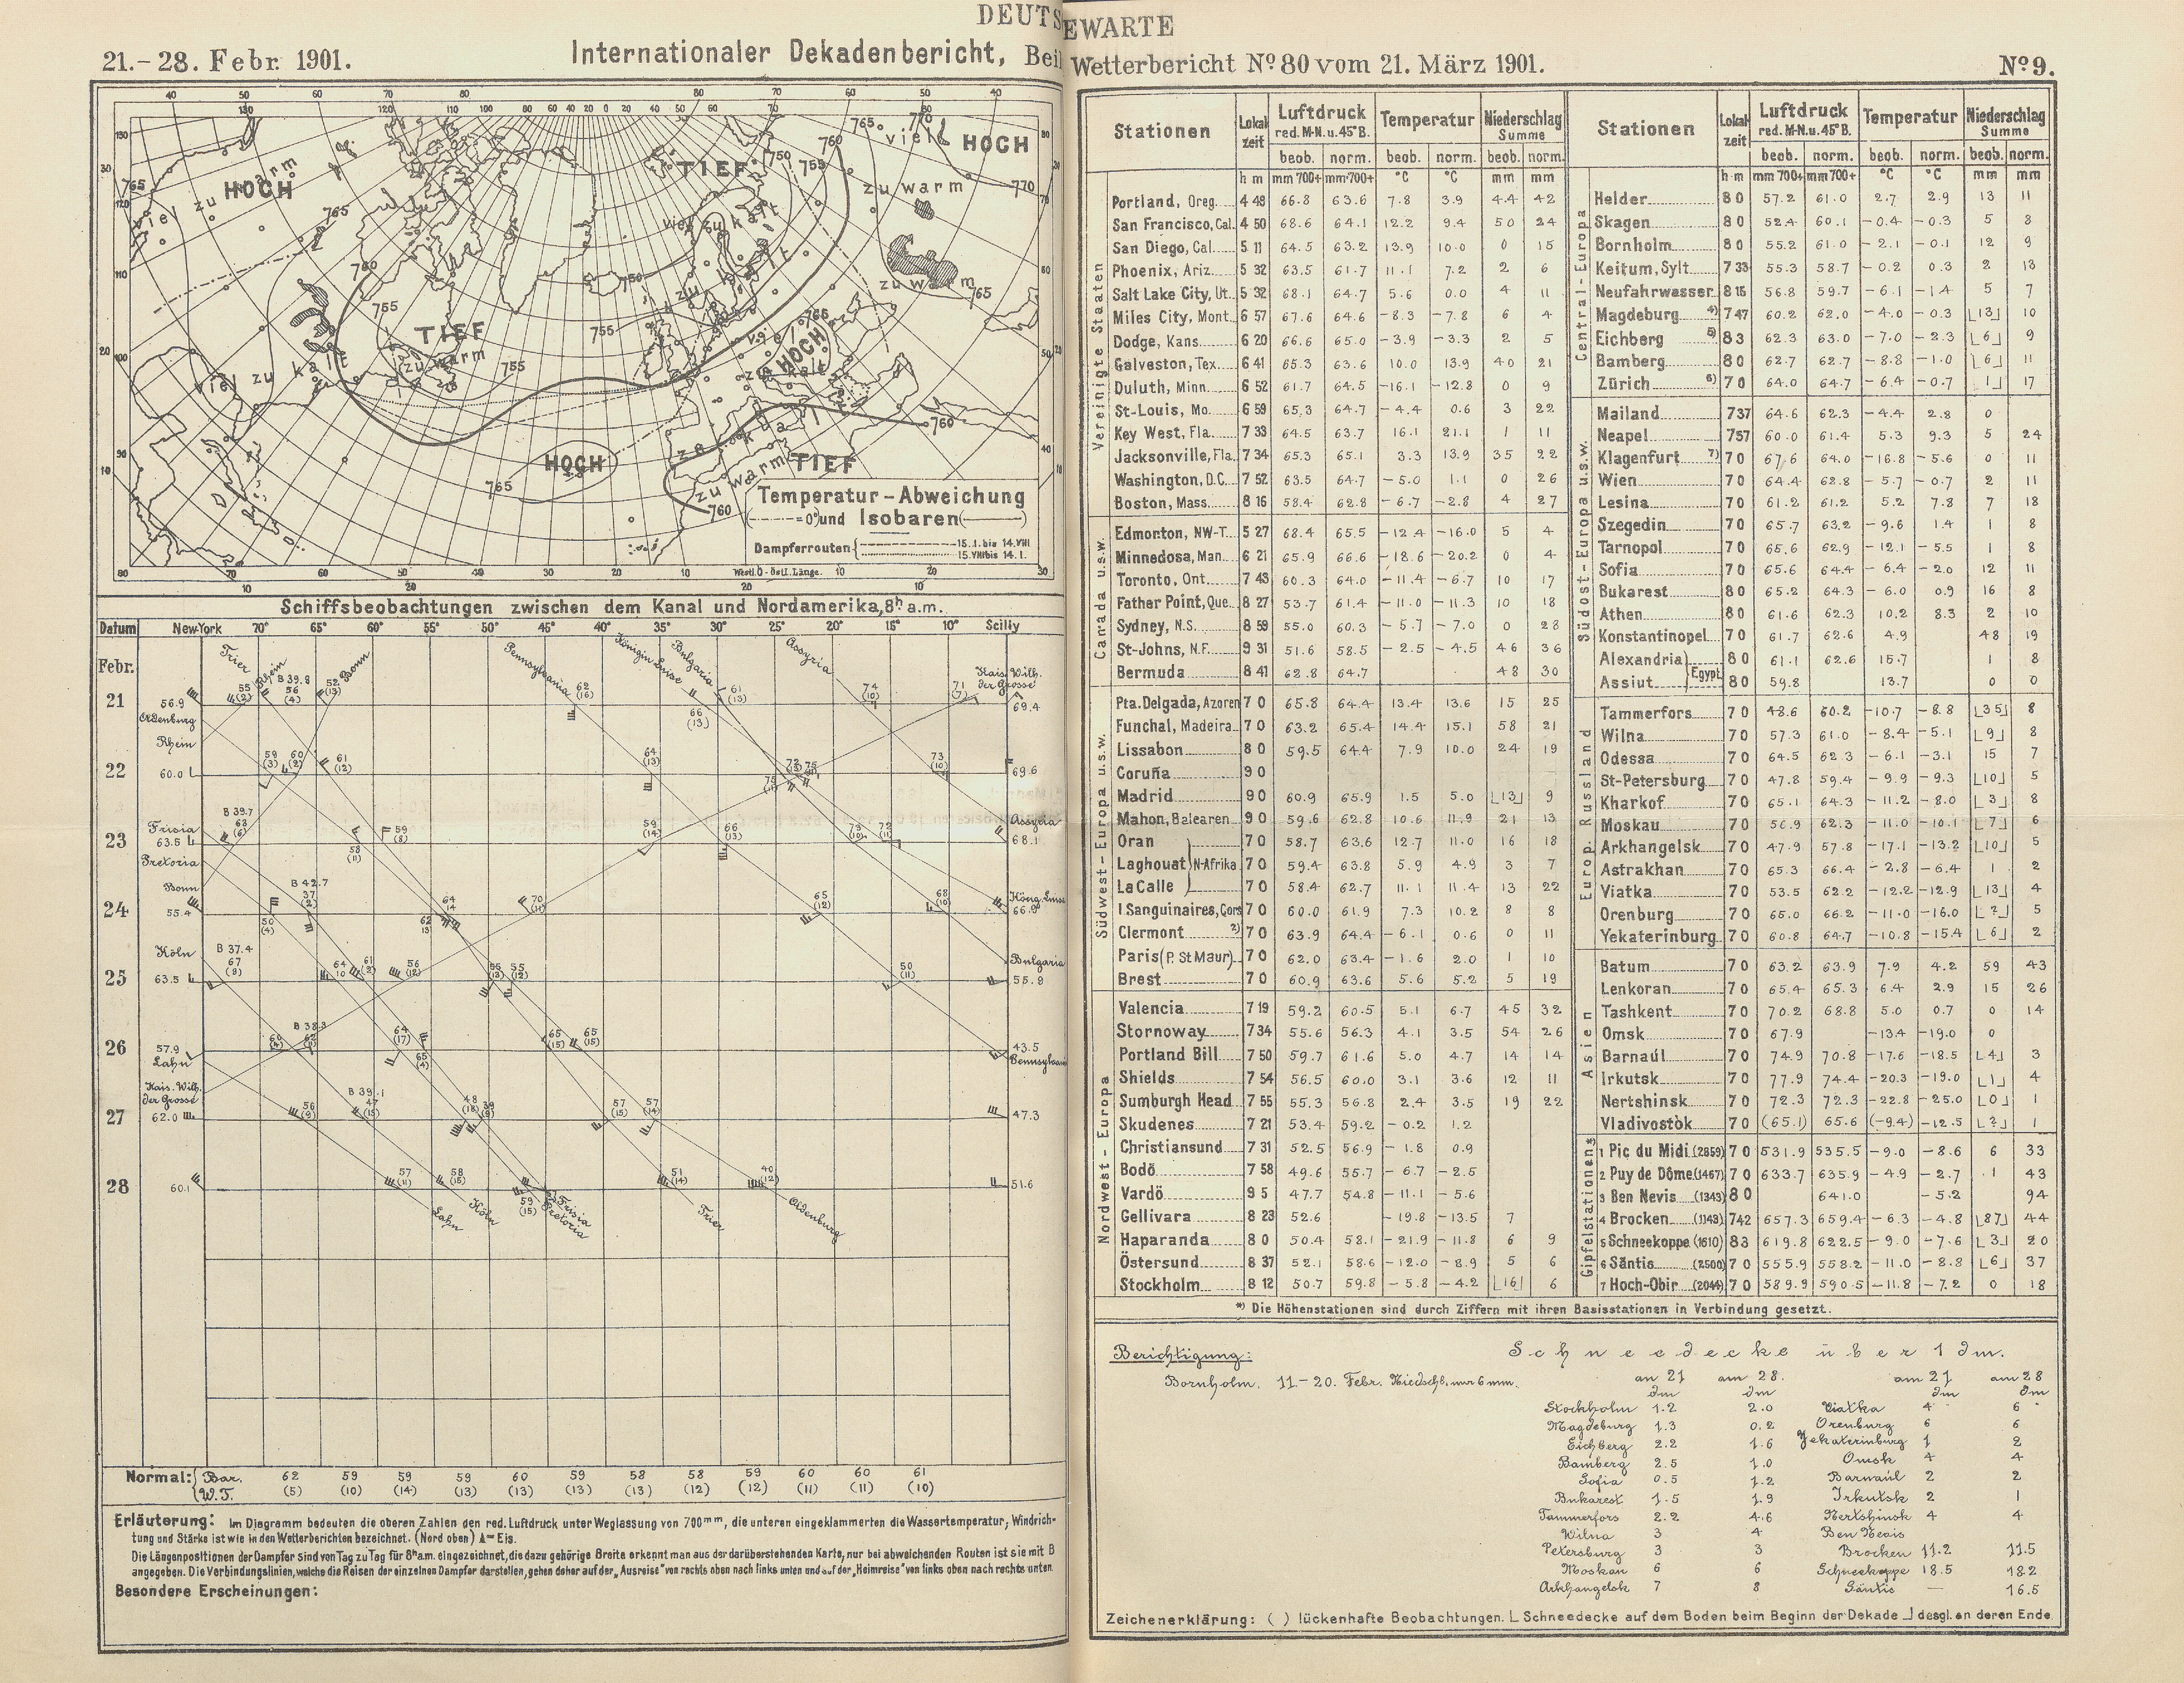 DEUTSEWARTE
21.–28. Febr. 1901.
Internationaler Dekadenbericht, Beil
Wetterbericht No. 80 vom 21. März 1901.
No. 9.
HOCH
TIEF
HOCH
viel zu warm
viel
zu warm
viel zu kalt
zu warm
TIEF
zu warm
viel zu kalt
HOCH
HOCH
TIEF
zu warm
Temperatur–Abweichung
(—·—·—=0°) und Isobaren (———)
Dampferrouten { 15.I. bis 14.VIII
15.VIII bis 14.I.
Westl. 0 - östl. Länge.
Schiffsbeobachtungen zwischen dem Kanal und Nordamerika, 8h a.m.
Datum New-York 70° 65° 60° 55° 50° 45° 40° 35° 30° 25° 20° 15° 10° Scilly
Febr.
Trier Rhein Bonn Pennsylvania Königin Luise Bulgaria Assyria Kais. Wilh. der Grosse
21 56.9 69.4
Oldenburg
Rhein
22 60.0 69.6
Frisia Assyria
23 63.5 68.1
Pretoria
Bonn Köng. Luise
24 55.4 66.9
Köln Bulgaria
25 63.5 55.9
26 57.9 43.5
Lahn Pennsylvania
Kais. Wilh. der Grosse
27 62.0 47.3
28 60.1 51.6
Lahn Köln Frisia Pretoria Trier Oldenburg
Normal: { Bar. 62 59 59 59 60 59 58 58 59 60 60 61
W.T. (5) (10) (14) (13) (13) (13) (13) (12) (12) (11) (11) (10)
Erläuterung: Im Diagramm bedeuten die oberen Zahlen den red. Luftdruck unter Weglassung von 700mm, die unteren eingeklammerten die Wassertemperatur; Windrich-
tung und Stärke ist wie in den Wetterberichten bezeichnet. (Nord oben) A = Eis.
Die Längenpositionen der Dampfer sind von Tag zu Tag für 8h a.m. eingezeichnet, die dazu gehörige Breite erkennt man aus der darüberstehenden Karte, nur bei abweichenden Routen ist sie mit B
angegeben. Die Verbindungslinien, welche die Reisen der einzelnen Dampfer darstellen, gehen daher auf der „Ausreise" von rechts oben nach links unten und auf der „Heimreise" von links oben nach rechts unten.
Besondere Erscheinungen:
Stationen Lokalzeit Luftdruck red. M-N. u. 45° B. Temperatur Niederschlag Summe
beob. norm. beob. norm. beob. norm.
h m mm 700+ mm 700+ °C °C mm mm
Vereinigte Staaten
Portland, Oreg. 4 48 66.8 63.6 7.8 3.9 44 42
San Francisco, Cal. 4 50 68.6 64.1 12.2 9.4 50 24
San Diego, Cal. 5 11 64.5 63.2 13.9 10.0 0 15
Phoenix, Ariz. 5 32 63.5 61.7 11.1 7.2 2 6
Salt Lake City, Ut. 5 32 68.1 64.7 5.6 0.0 4 11
Miles City, Mont. 6 57 67.6 64.6 -8.3 -7.8 6 4
Dodge, Kans. 6 20 66.6 65.0 -3.9 -3.3 2 5
Galveston, Tex. 6 41 65.3 63.6 10.0 13.9 40 21
Duluth, Minn. 6 52 61.7 64.5 -16.1 -12.8 0 9
St-Louis, Mo. 6 59 65.3 64.7 -4.4 0.6 3 22
Key West, Fla. 7 33 64.5 63.7 16.1 21.1 1 11
Jacksonville, Fla. 7 34 65.3 65.1 3.3 13.9 35 22
Washington, D.C. 7 52 63.5 64.7 -5.0 1.1 0 26
Boston, Mass. 8 16 58.4 62.8 -6.7 -2.8 4 27
Canada u.s.w.
Edmonton, NW-T. 5 27 68.4 65.5 -12.4 -16.0 5 4
Minnedosa, Man. 6 21 65.9 66.6 -18.6 -20.2 0 4
Toronto, Ont. 7 43 60.3 64.0 -11.4 -6.7 10 17
Father Point, Que. 8 27 53.7 61.4 -11.0 -11.3 10 18
Sydney, N.S. 8 59 55.0 60.3 -5.7 -7.0 0 28
St-Johns, N.F. 9 31 51.6 58.5 -2.5 -4.5 46 36
Bermuda 8 41 62.8 64.7 48 30
Südwest-Europa u.s.w.
Pta. Delgada, Azoren 7 0 65.8 64.4 13.4 13.6 15 25
Funchal, Madeira 7 0 63.2 65.4 14.4 15.1 58 21
Lissabon 8 0 59.5 64.4 7.9 10.0 24 19
Coruña 9 0
Madrid 9 0 60.9 65.9 1.5 5.0 ⌊13⌋ 9
Mahon, Balearen 9 0 59.6 62.8 10.6 11.9 21 13
Oran 7 0 58.7 63.6 12.7 11.0 16 18
Laghouat } N-Afrika 7 0 59.4 63.8 5.9 4.9 3 7
La Calle 7 0 58.4 62.7 11.1 11.4 13 22
I. Sanguinaires, Cors. 7 0 60.0 61.9 7.3 10.2 8 8
Clermont 2) 7 0 63.9 64.4 -6.1 0.6 0 11
Paris (P. St Maur) 7 0 62.0 63.4 -1.6 2.0 1 10
Brest 7 0 60.9 63.6 5.6 5.2 5 19
Nordwest-Europa
Valencia 7 19 59.2 60.5 5.1 6.7 45 32
Stornoway 7 34 55.6 56.3 4.1 3.5 54 26
Portland Bill 7 50 59.7 61.6 5.0 4.7 14 14
Shields 7 54 56.5 60.0 3.1 3.6 12 11
Sumburgh Head 7 55 55.3 56.8 2.4 3.5 19 22
Skudenes 7 21 53.4 59.2 -0.2 1.2
Christiansund 7 31 52.5 56.9 -1.8 0.9
Bodö 7 58 49.6 55.7 -6.7 -2.5
Vardö 9 5 47.7 54.8 -11.1 -5.6
Gellivara 8 23 52.6 -19.8 -13.5 7
Haparanda 8 0 50.4 58.1 -21.9 -11.8 6 9
Östersund 8 37 52.1 58.6 -12.0 -8.9 5 6
Stockholm 8 12 50.7 59.8 -5.8 -4.2 ⌊16⌋ 6
Stationen Lokalzeit Luftdruck red. M-N. u. 45° B. Temperatur Niederschlag Summe
beob. norm. beob. norm. beob. norm.
h m mm 700+ mm 700+ °C °C mm mm
Central-Europa
Helder 8 0 57.2 61.0 2.7 2.9 13 11
Skagen 8 0 52.4 60.1 -0.4 -0.3 5 8
Bornholm 8 0 55.2 61.0 -2.1 -0.1 12 9
Keitum, Sylt 7 33 55.3 58.7 -0.2 0.3 2 13
Neufahrwasser 8 15 56.8 59.7 -6.1 -1.4 5 7
Magdeburg 4) 7 47 60.2 62.0 -4.0 -0.3 ⌊13⌋ 10
Eichberg 5) 8 3 62.3 63.0 -7.0 -2.3 ⌊6⌋ 9
Bamberg 8 0 62.7 62.7 -8.8 -1.0 ⌊6⌋ 11
Zürich 6) 7 0 64.0 64.7 -6.4 -0.7 1⌋ 17
Südost-Europa u.s.w.
Mailand 7 37 64.6 62.3 -4.4 2.8 0
Neapel 7 57 60.0 61.4 5.3 9.3 5 24
Klagenfurt 7) 7 0 67.6 64.0 -16.8 -5.6 0 11
Wien 7 0 64.4 62.8 -5.7 -0.7 2 11
Lesina 7 0 61.2 61.2 5.2 7.8 7 18
Szegedin 7 0 65.7 63.2 -9.6 1.4 1 8
Tarnopol 7 0 65.6 62.9 -12.1 -5.5 1 8
Sofia 7 0 65.6 64.4 -6.4 -2.0 12 11
Bukarest 8 0 65.2 64.3 -6.0 0.9 16 8
Athen 8 0 61.6 62.3 10.2 8.3 2 10
Konstantinopel 7 0 61.7 62.6 4.9 48 19
Alexandria } Egypt. 8 0 61.1 62.6 15.7 1 8
Assiut 8 0 59.8 13.7 0 0
Europ. Russland
Tammerfors 7 0 48.6 60.2 -10.7 -8.8 ⌊35⌋ 8
Wilna 7 0 57.3 61.0 -8.4 -5.1 ⌊9⌋ 8
Odessa 7 0 64.5 62.3 -6.1 -3.1 15 7
St-Petersburg 7 0 47.8 59.4 -9.9 -9.3 ⌊10⌋ 5
Kharkof 7 0 65.1 64.3 -11.2 -8.0 ⌊3⌋ 8
Moskau 7 0 56.9 62.3 -11.0 -10.1 ⌊7⌋ 6
Arkhangelsk 7 0 47.9 57.8 -17.1 -13.2 ⌊10⌋ 5
Astrakhan 7 0 65.3 66.4 -2.8 -6.4 1 2
Viatka 7 0 53.5 62.2 -12.2 -12.9 ⌊13⌋ 4
Orenburg 7 0 65.0 66.2 -11.0 -16.0 ⌊2⌋ 5
Yekaterinburg 7 0 60.8 64.7 -10.8 -15.4 ⌊6⌋ 2
Asien
Batum 7 0 63.2 63.9 7.9 4.2 59 43
Lenkoran 7 0 65.4 65.3 6.4 2.9 15 26
Tashkent 7 0 70.2 68.8 5.0 0.7 0 14
Omsk 7 0 67.9 -13.4 -19.0 0
Barnaúl 7 0 74.9 70.8 -17.6 -18.5 ⌊4⌋ 3
Irkutsk 7 0 77.9 74.4 -20.3 -19.0 ⌊1⌋ 4
Nertshinsk 7 0 72.3 72.3 -22.8 -25.0 ⌊0⌋ 1
Vladivostok 7 0 (65.1) 65.6 (-9.4) -12.5 ⌊2⌋ 1
Gipfelstationen*
1 Pic du Midi (2859) 7 0 531.9 535.5 -9.0 -8.6 6 33
2 Puy de Dôme (1467) 7 0 633.7 635.9 -4.9 -2.7 1 43
3 Ben Nevis (1343) 8 0 641.0 -5.2 94
4 Brocken (1143) 7 42 657.3 659.4 -6.3 -4.8 ⌊87⌋ 44
5 Schneekoppe (1610) 8 3 619.8 622.5 -9.0 -7.6 ⌊3⌋ 20
6 Säntis (2500) 7 0 555.9 558.2 -11.0 -8.8 ⌊6⌋ 37
7 Hoch-Obir (2044) 7 0 589.9 590.5 -11.8 -7.2 0 18
*) Die Höhenstationen sind durch Ziffern mit ihren Basisstationen in Verbindung gesetzt.
Berichtigung:
Bornholm. 11–20. Febr. Niedschl. nur 6 mm.
Schneedecke über 1 dm.
am 21 am 28. am 21 am 28
dm dm dm dm
Stockholm 1.2 2.0 Viatka 4 6
Magdeburg 1.3 0.2 Orenburg 6 6
Eichberg 2.2 1.6 Yekaterinburg 1 2
Bamberg 2.5 1.0 Omsk 4 4
Sofia 0.5 1.2 Barnaúl 2 2
Bukarest 1.5 1.9 Irkutsk 2 1
Tammerfors 2.2 4.6 Nertshinsk 4 4
Wilna 3 4 Ben Nevis
Petersburg 3 3 Brocken 11.2 11.5
Moskau 6 6 Schneekoppe 18.5 18.2
Arkhangelsk 7 8 Säntis — 16.5
Zeichenerklärung: ( ) lückenhafte Beobachtungen. ⌊ Schneedecke auf dem Boden beim Beginn der Dekade ⌋ desgl. an deren Ende.